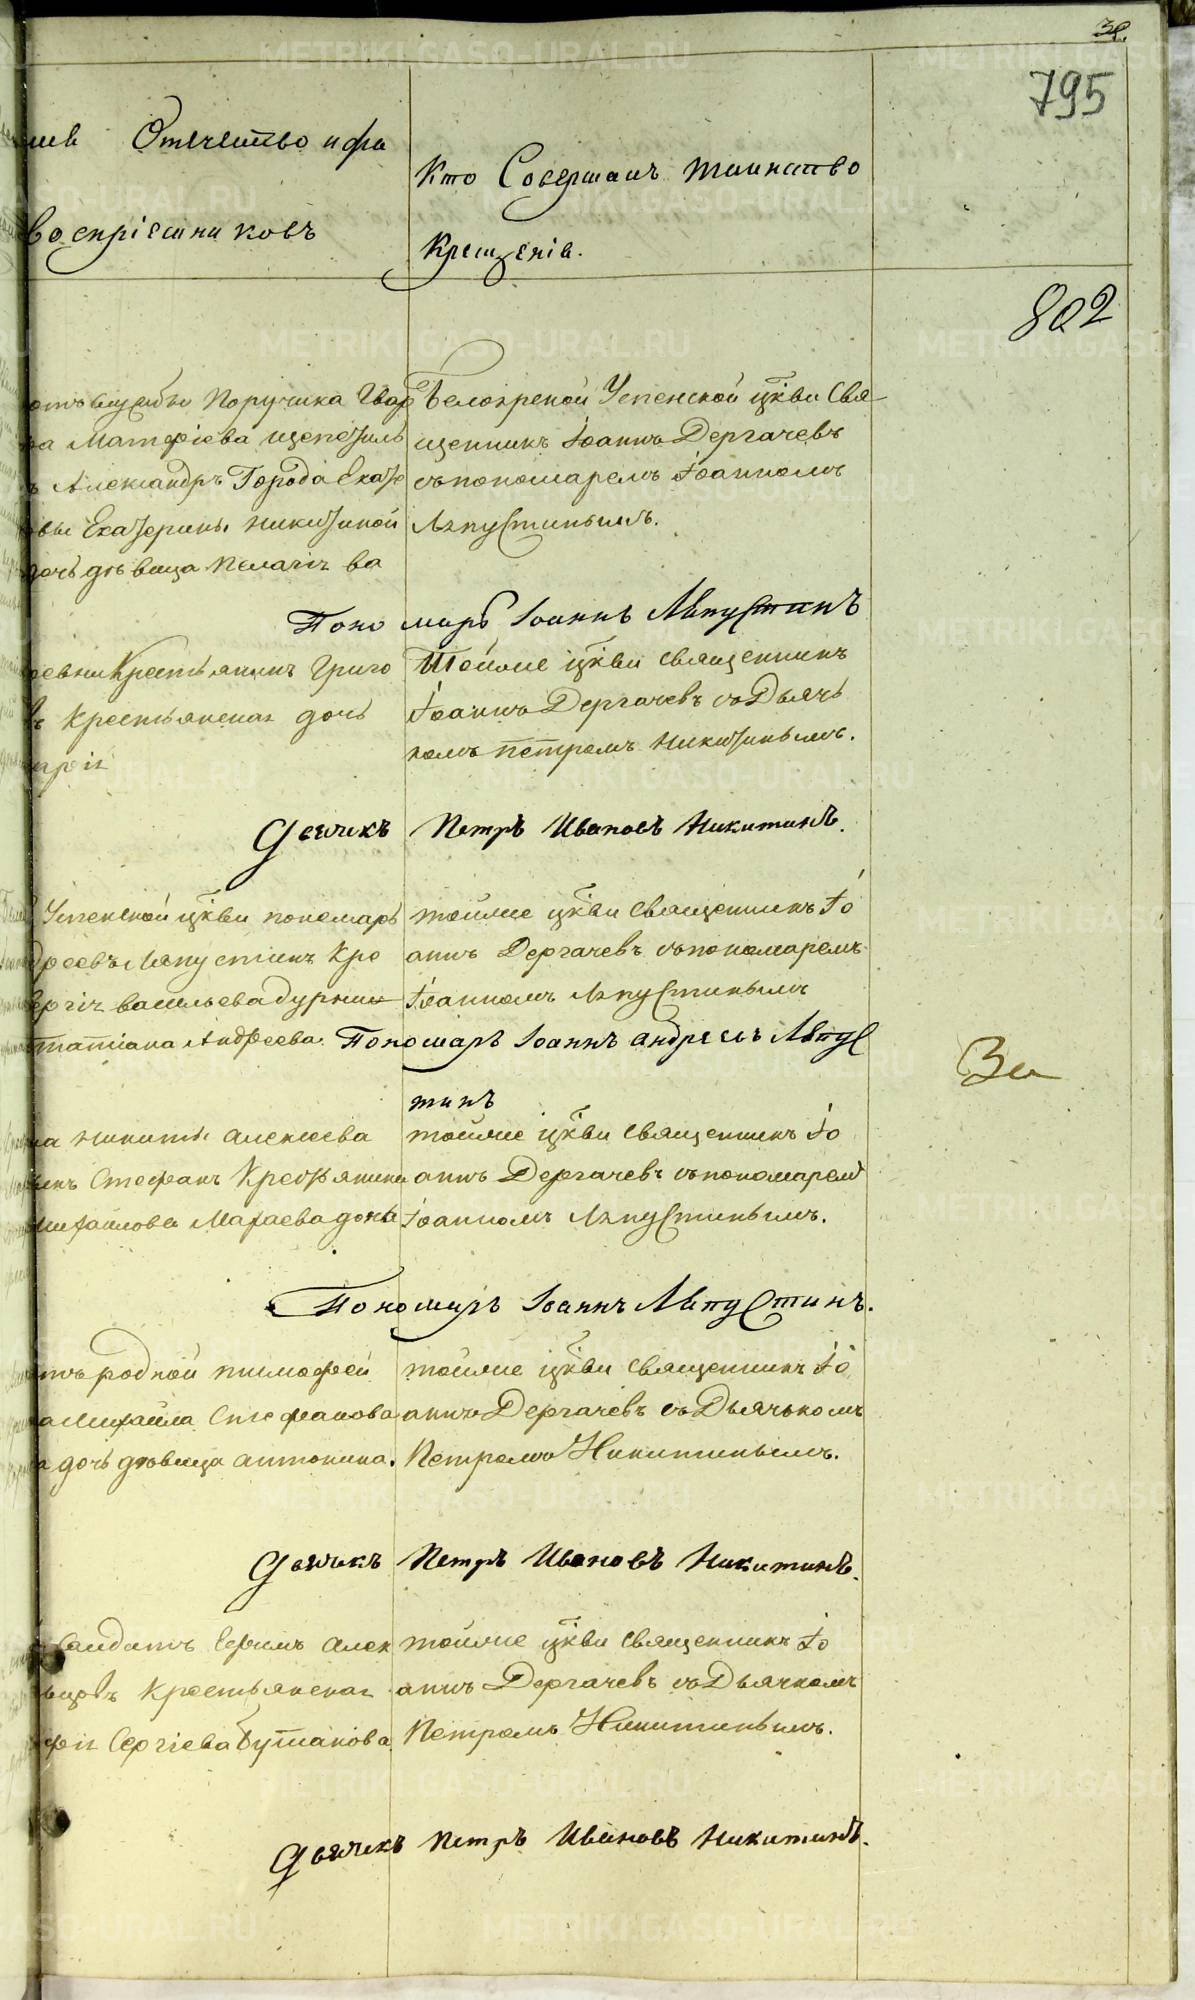 795
мєв Отечество и фа
воспріемниковъ
Кто Совершалъ таинство
Крещенія.
802
отъ службы Поручика
ва Матфіева
ъ Александръ Города Екате
вы Екатерины Никитиной
дочь дѣвица Пелагія
Белоярской Успенской цкви Свя
щенникъ Іоаннъ Дергачевъ
съ пономаремъ Іоанномъ
Ляпустинымъ.
Пономарь Іоаннъ Ляпустинъ
ревни Крестьянинъ Григо
въ Крестьянская дочь
Тойже цкви священникъ
Іоаннъ Дергачевъ съ Дьячь
комъ Петромъ Никитинымъ.
Дьячикъ Петръ Ивановъ Никитинъ.
Успенской цкви пономарь
дреевъ Ляпустинъ
васильева
Татіана Андреева.
тойже цкви священникъ Іо
аннъ Дергачевъ съ пономаремъ
Іоанномъ Ляпустинымъ
Пономарь Іоаннъ Андреевъ Ляпус
тинъ
За
на Никиты Алексеева
Стефанъ Крестьянина
Михайлова дочь
тойже цкви священникъ Іо
аннъ Дергачевъ съ пономаремъ
Іоанномъ Ляпустинымъ.
Пономарь Іоаннъ Ляпустинъ.
родной тимофей
Михайла Стефанова
дочь девица антонина.
тойже цкви священникъ Іо
аннъ Дергачевъ съ Дьячькомъ
Петромъ Никитинымъ.
Дьячикъ Петръ Ивановъ Никитинъ.
Салдатъ Ефимъ Алек
Крестьянская
Сергіева Бутакова
тойже цкви священникъ Іо
аннъ Дергачевъ съ Дьячкомъ
Петромъ Никитинымъ.
Дьячикъ Петръ Ивановъ Никитинъ.
METRIKI.GASO-URAL.RU